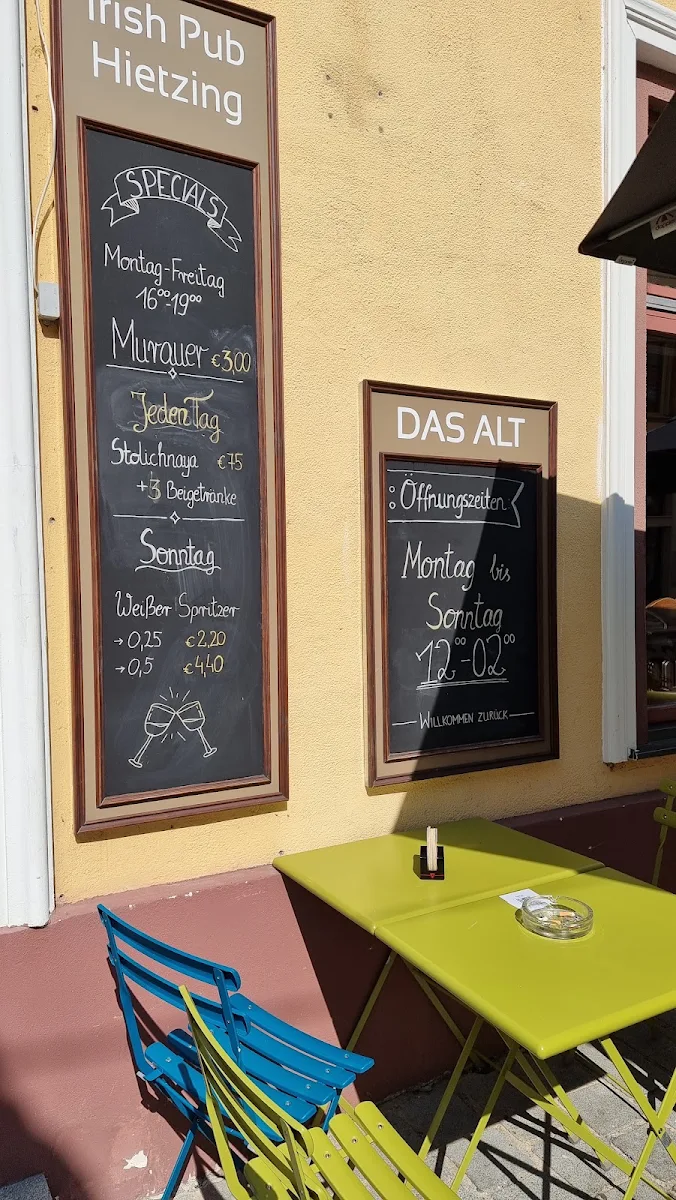 Irish Pub
Hietzing
SPECIALS
Montag-Freitag
16⁰⁰-19⁰⁰
Murauer €3,00
Jeden Tag
Stolichnaya €75
+3 Beigetränke
Sonntag
Weißer Spritzer
→0,25 €2,20
→0,5 €4,40
DAS ALT
Öffnungszeiten
Montag bis
Sonntag
12⁰⁰-02⁰⁰
WILLKOMMEN ZURÜCK